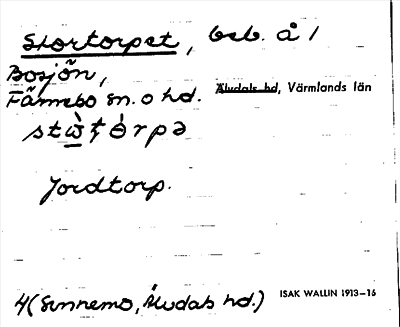 Stortorpet, beb. å 1
Bosjön,
Färnebo sn. o hd. Älvdals hd, Värmlands län
Jordtorp.
4 (Sunnemo, Älvdals hd.)
ISAK WALLIN 1913–15